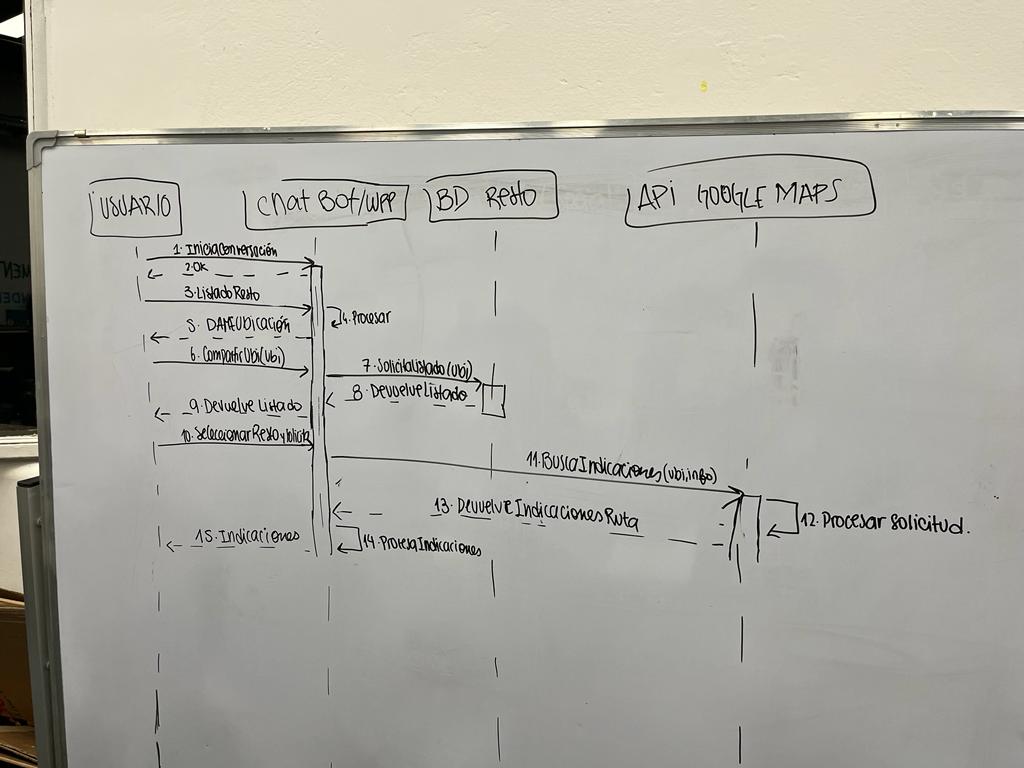 USUARIO
Chat Bot/WPP
BD Resto
API GOOGLE MAPS
1. IniciaConversación
2. OK
3. Listado Resto
4. Procesar
5. DAMEUbicación
6. CompartirUbi(Ubi)
7. SolicitaListado(Ubi)
8. Devuelve Listado
9. Devuelve Listado
10. Seleccionar Resto y
11. BuscaIndicaciones(ubi,info)
12. Procesar Solicitud.
13. Devuelve Indicaciones Ruta
14. ProcesaIndicaciones
15. Indicaciones